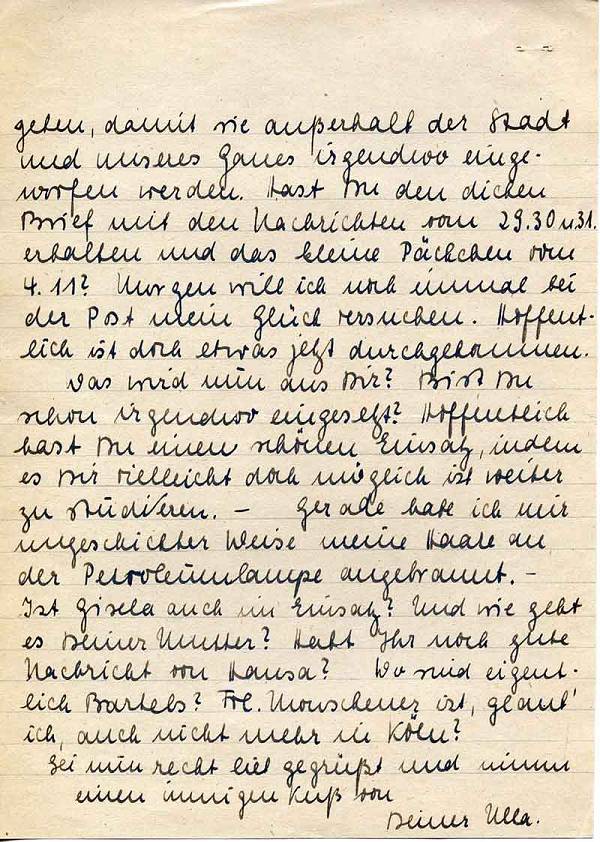 geben, damit sie außerhalb der Stadt
und unseres Gaues irgendwo einge-
worfen werden. Hast Du den dicken
Brief mit den Nachrichten vom 29.30 u. 31.
erhalten und das kleine Päckchen vom
4. 11? Morgen will ich noch einmal bei
der Post mein Glück versuchen. Hoffent-
lich ist doch etwas jetzt durchgekommen.
Was wird nun aus Dir? Bist Du
schon irgendwo eingesetzt? Hoffentlich
hast Du einen schönen Einsatz, indem
es Dir vielleicht doch möglich ist weiter
zu studieren. – Gerade habe ich mir
ungeschickter Weise meine Haare an
der Petroleumlampe angebrannt. –
Ist Gisela auch im Einsatz? Und wie geht
es Deiner Mutter? Habt Ihr noch gute
Nachricht von Hansa? Wo sind eigent-
lich Bartels? Frl. ist, glaub'
ich, auch nicht mehr in Köln?
Sei nun recht viel gegrüßt und nimm
einen innigen Kuß von
Deiner Ulla.